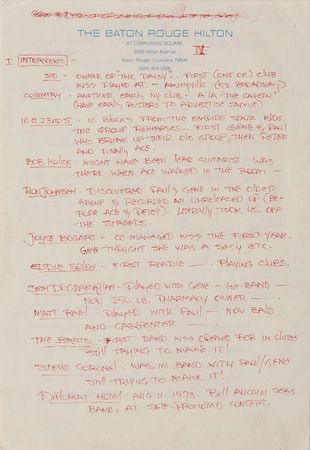 THE BATON ROUGE HILTON
AT CORPORATE SQUARE
5500 Hilton Avenue
Baton Rouge, Louisiana 70808
(504) 924-5000
IV
I INTERVIEWS -
SID - OWNER OF "THE DAISY" - FIRST (ONE OF) CLUB
KISS PLAYED AT - AMITYVILLE (BROADWAY)
COVENTRY - ANOTHER EARLY NY CLUB - A'LA "THE CAVERN"
(HAVE EARLY POSTERS TO ADVERTISE SAME)
10 E 23RD ST - 10 BLOCKS FROM THE EMPIRE STATE BLDG.
THE GROUP REHEARSES - FIRST GENE & PAUL
WHO BREAK UP THEIR OLD GROUP, THEN PETER
AND FINALLY ACE.
BOB KULICK - MIGHT HAVE BEEN LEAD GUITARIST - WAS
THERE WHEN ACE WALKED IN THE ROOM -
RON JOHNSON - DISCOVERED PAUL & GENE IN THE OLDER
GROUP & RECORDED AN UNRELEASED LP (BE-
FORE ACE & PETER). LITERALLY TOOK US OFF
THE STREETS.
JOYCE BOGART - CO MANAGED KISS THE FIRST YEAR.
GENE THOUGHT SHE WAS A SECY ETC.
EDDIE - FIRST ROADIE - PLAYING CLUBS
SETH DOGRAMAJIAN - PLAYED WITH GENE - 1ST BAND -
NOW 250 LB. PHARMACY OWNER -
MATT RAEL PLAYED WITH PAUL - NOW BALD
AND CARPENTER -
THE BRATS - FIRST BAND KISS OPENED FOR IN CLUBS
STILL TRYING TO MAKE IT!
STEVE CORONEL - WAS IN BAND WITH PAUL/GENE
STILL TRYING TO MAKE IT!
DIPLOMAT HOTEL AUG 11. 1973. BILL AUCOIN SEES
BAND, AT SELF-PROMOTED CONCERT.